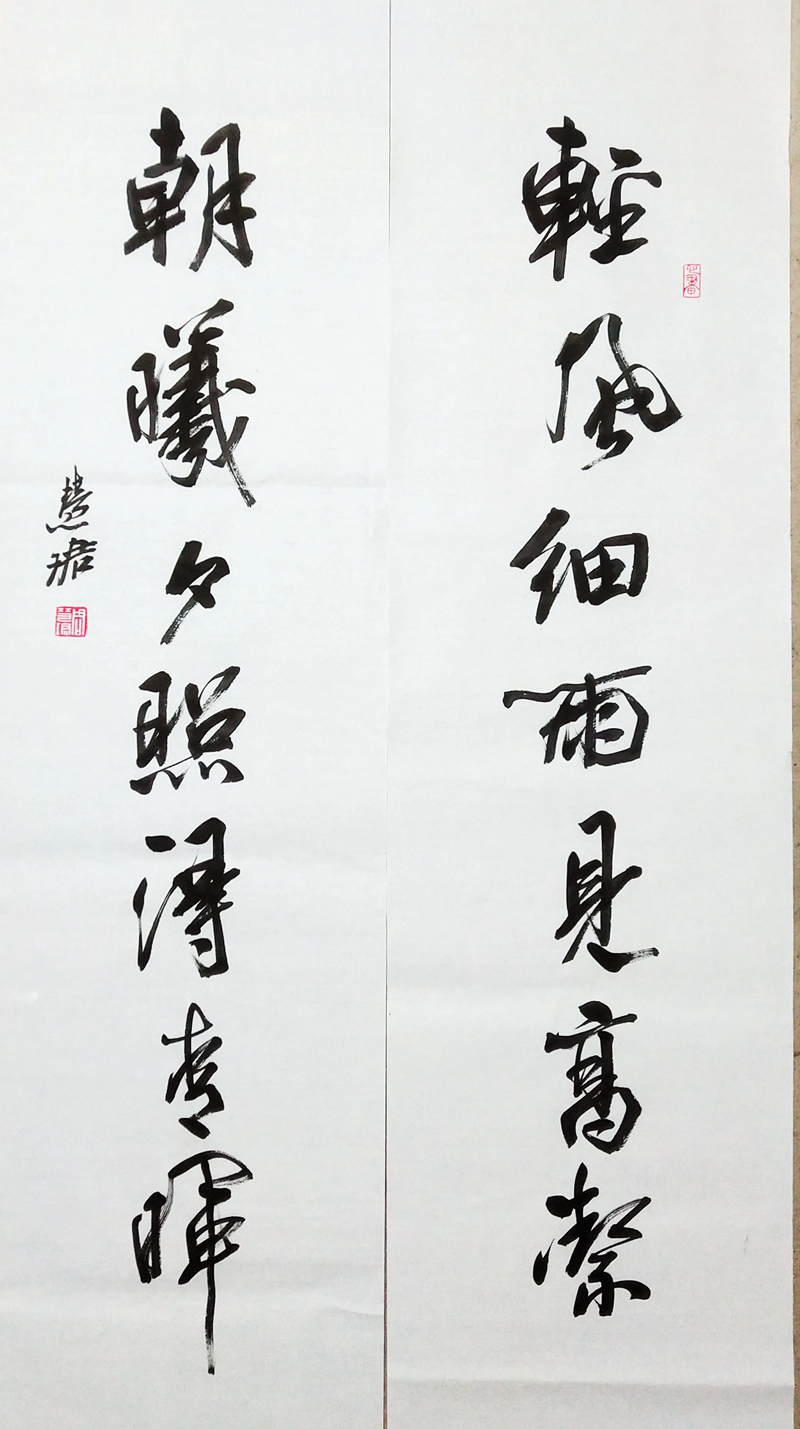 輕風細雨見高潔
朝曦夕照得春暉
慧珺